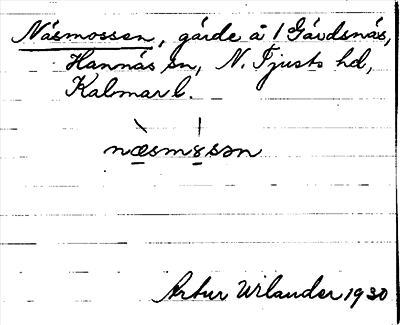 Näsmossen, gärde å 1 Gårdsnäs,
Hannäs sn, N. Tjusts hd,
Kalmar l.
næsmɷsən
Artur Wilander 1930